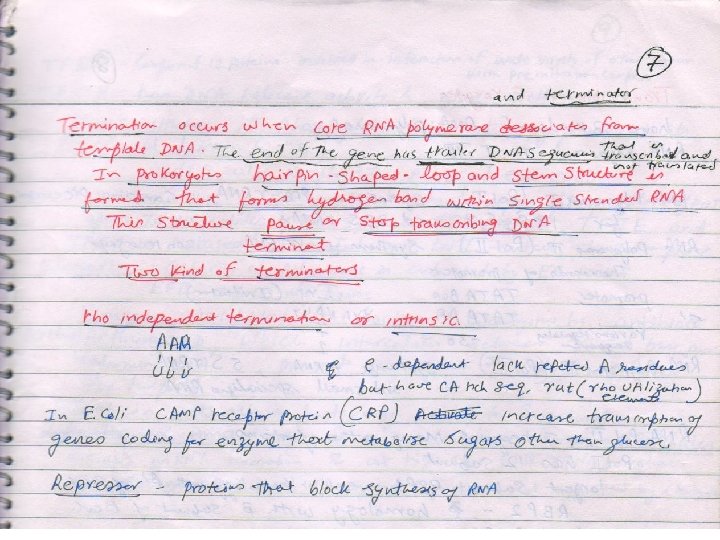 7
and terminator
Termination occurs when core RNA polymerase dessociates from
template DNA. The end of the gene has trailer DNA sequences that is transcribed and not translated
In prokaryotes hairpin-shaped-loop and stem structure is
formed that forms hydrogen bond within single stranded RNA
This structure pause or stop transcribing DNA
terminat
Two kind of terminators
rho independent termination or intrinsic
AAA
UUU
ρ - dependent lack repeted A residues
but have CA rich seq, rut (rho utilization) element
In E. coli CAMP receptor protein (CRP) Activate increase transcription of
genes coding for enzyme that metabolise sugars other than glucose.
Repressor - proteins that block synthesis of RNA